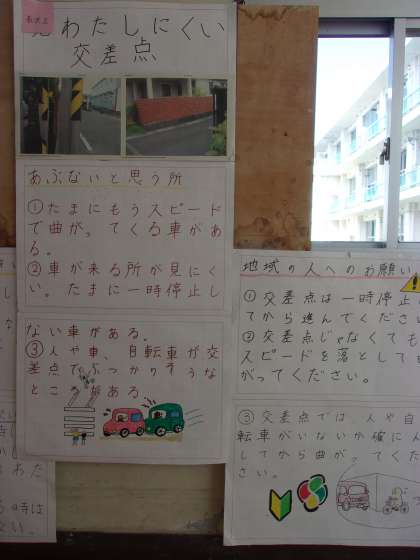 見わたしにくい
交差点
あぶないと思う所
①たまにもうスピード
で曲がってくる車があ
る。
②車が来る所が見にく
い。たまに一時停止し
ない車がある。
③人や車、自転車が交
差点でぶつかりそうな
とこ がある
地域の人へのお願い
①交差点は一時停止
てから進んでくださ
②交差点じゃなくても
スピードを落としても
がってください。
③交差点では、人や自
転車がいないか確
してから曲がってくだ
さい。